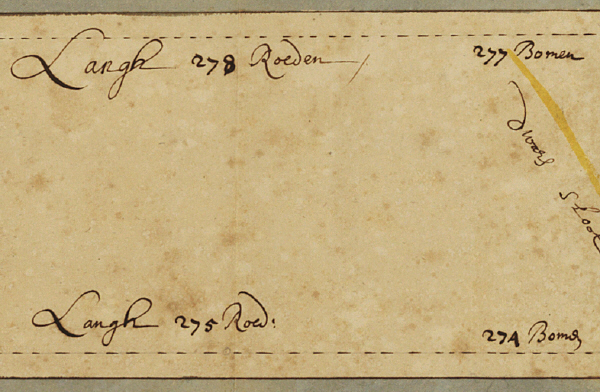 Langh 278 Roeden
277 Bomen
dwars
sloot
Langh 275 Roed:
274 Bomen